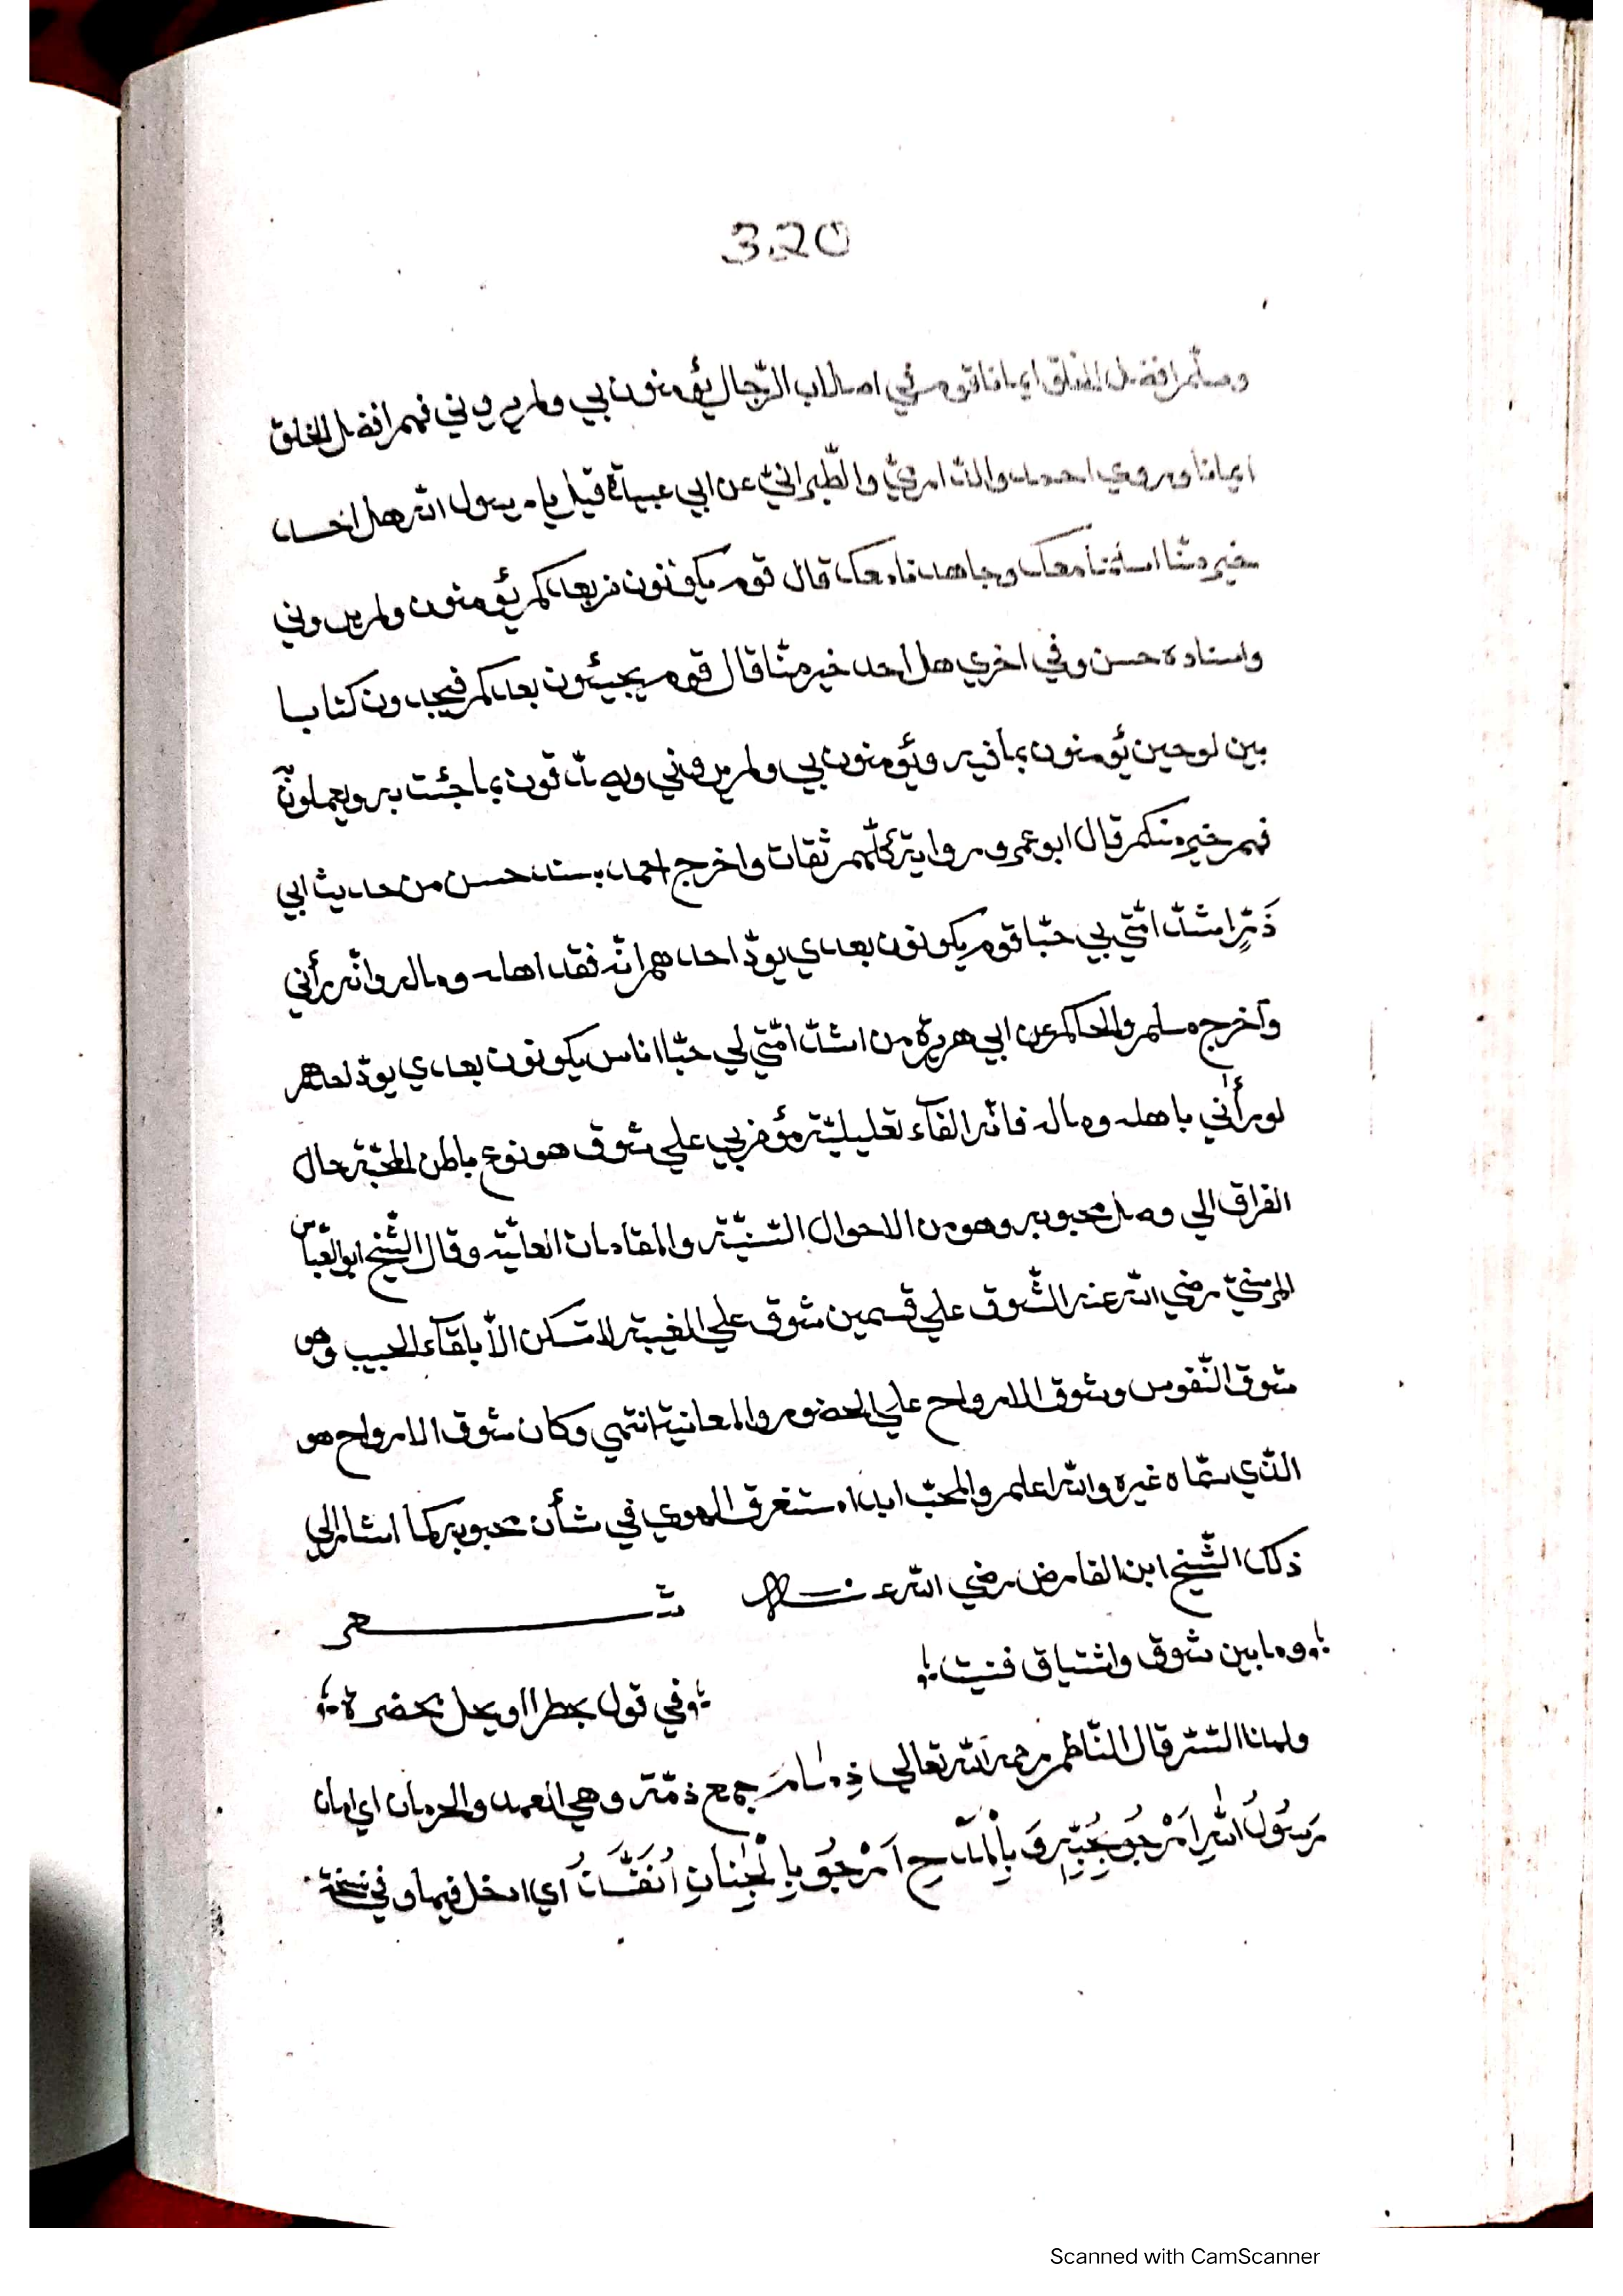 3.20
وسلم افضل الخلق ايمانا قوم في اصلاب الرّجال يؤمنون بي ولم يروني فهم افضل الخلق
ايمانا وروي احمد والدّارميّ والطّبرانيّ عن ابي عبيدة قيل يا رسول الله هل احد
خير منّا اسلمنا معك وجاهدنا معك قال قوم يكونون من بعدكم يؤمنون ولم يروني
واسناده حسن وفي اخري هل احد خير منّا قال قوم يجيئون بعدكم فيجدون كتابا
بين لوحين يؤمنون بما فيه ويؤمنون بي ولم يروني ويصدّقون بما جئت به ويعملون به
فهم خير منكم قال ابو عمرو رواية كلّهم ثقات واخرج احمد بسند حسن من حديث ابي
ذَرٍّ اشدّ امّتي بي حبّا قوم يكونون بعدي يودّ احدهم انّه فقد اهله وماله وانّه رأني
وآخرج مسلم والحاكم عن ابي هريرة من اشدّ امّتي لي حبّا اناس يكونون بعدي يودّ احدهم
لو رأني باهله وماله فانّه الفآء تعليليّة مؤمن بي علي شوق هو نوع باطن المحبّة حال
الفراق الي وصل محبوبه وهو من الاحوال السّنيّة والمقامات العليّة وقال الشّيخ ابو العبّاس
المرسيّ رضي الله عنه الشّوق علي قسمين شوق علي الغيبة لا تسكن الاّ بلقآء الحبيب وهو
شوق النّفوس وشوق الارواح علي الحضور والمعانية انتهي وكان شوق الارواح هو
الّذي سمّاه غيره والله اعلم والمحبّ ابدا مستغرق الهوي في شأن محبوبه كما اشار الي
ذلك الشّيخ ابن الفارض رضي الله عنه شعر
وما بين شوق واشتياق فنيت
في قول بحظر او يحل بحضرة
ولهذا السّرّ قال النّاظم رحمه الله تعالي ذِمَامَ جمع ذمّة وهي العهد والحرمان اي امان
رَسُولُ اللهِ اَرْجُو بِحُبِّهِ وَ بِالْمَدْحِ اَرْجُو بِالْجِنَانِ اُنَفَّدَنُ اي ادخل فيها وفي نسخة
Scanned with CamScanner